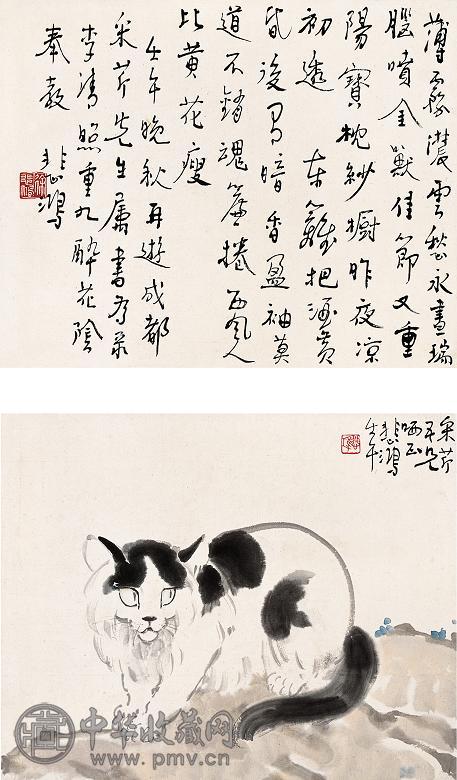 薄霧濃雲愁永晝瑞
腦噴金獸佳節又重
陽寶枕紗櫥昨夜凉
初透 東籬把酒黄
昏後有暗香盈袖莫
道不銷魂簾捲西風人
比黄花瘦
壬午晚秋再遊成都
采芹先生属書為录
李清照重九醉花陰
奉教
悲鴻
采芹
吾兄
哂正
悲鴻
壬午
中华收藏网
www.pmv.cn